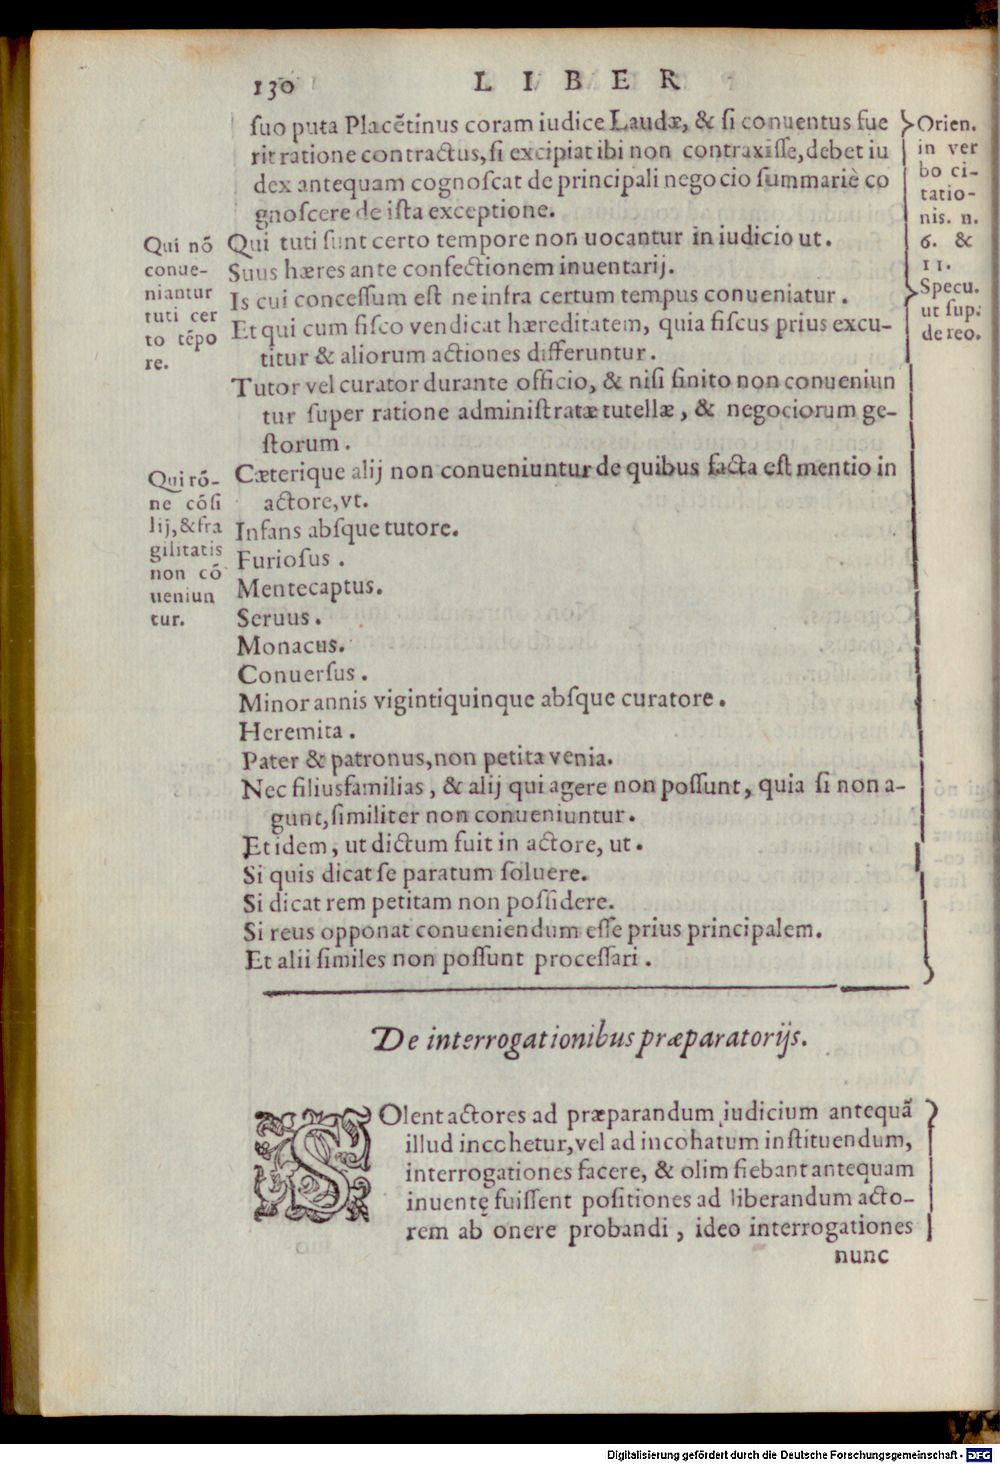 130 LIBER
ſuo puta Placẽtinus coram iudice Laudæ, & ſi conuentus fue
rit ratione contractus, ſi excipiat ibi non contraxiſſe, debet iu
dex antequam cognoſcat de principali negocio ſummariè co
gnoſcere de iſta exceptione.
Qui tuti ſunt certo tempore non uocantur in iudicio ut.
Suus hæres ante confectionem inuentarij.
Is cui conceſſum eſt ne infra certum tempus conueniatur.
Et qui cum fiſco vendicat hæreditatem, quia fiſcus prius excu-
titur & aliorum actiones differuntur.
Tutor vel curator durante officio, & niſi finito non conueniun
tur ſuper ratione adminiſtratæ tutellæ, & negociorum ge-
ſtorum.
Cæterique alij non conueniuntur de quibus facta eſt mentio in
actore, vt.
Infans abſque tutore.
Furioſus.
Mentecaptus.
Seruus.
Monacus.
Conuerſus.
Minor annis vigintiquinque abſque curatore.
Heremita.
Pater & patronus, non petita venia.
Nec filiusfamilias, & alij qui agere non poſſunt, quia ſi non a-
gunt, ſimiliter non conueniuntur.
Et idem, ut dictum fuit in actore, ut.
Si quis dicat ſe paratum ſoluere.
Si dicat rem petitam non poſſidere.
Si reus opponat conueniendum eſſe prius principalem.
Et alii ſimiles non poſſunt proceſſari.
Qui nõ
conue-
niantur
tuti cer
to tẽpo
re.
Qui rõ-
ne cõſi
lij, & fra
gilitatis
non cõ
ueniun
tur.
Orien.
in ver
bo ci-
tatio-
nis. n.
6. &
11.
Specu.
ut ſup.
de reo.
De interrogationibus præparatorijs.
SOlent actores ad præparandum iudicium antequã
illud incohetur, vel ad incohatum inſtituendum,
interrogationes facere, & olim fiebant antequam
inuentę fuiſſent poſitiones ad liberandum acto-
rem ab onere probandi, ideo interrogationes
nunc
Digitalisierung gefördert durch die Deutsche Forschungsgemeinschaft - DFG